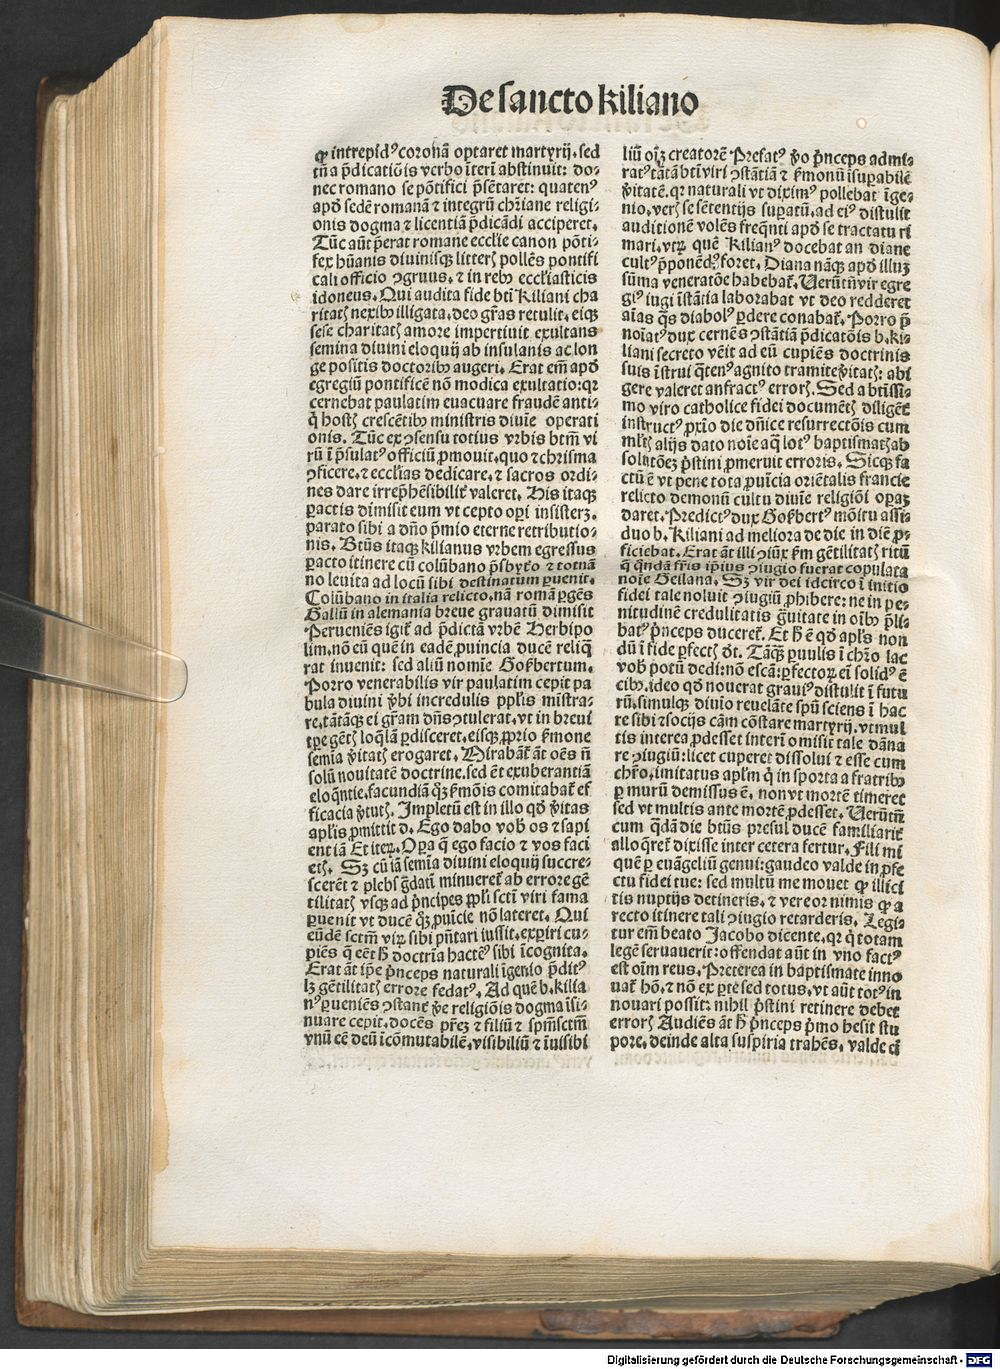 De sancto kiliano
ꝙ intrepidꝰ coronā optaret martyrij. sed
tn̄ a p̄dicatiōis verbo īteri abstinuit: do⸗
nec romano se pōtifici p̄sētaret: quatenꝰ
apð sedē romanā ⁊ integrū chr̄iane religi⸗
onis dogma ⁊ licentiā p̄dicādi acciperet.
Tūc aūt p̄erat romane eccl̄ie canon pōti⸗
fex hūanis diuinisqꝫ litterꝭ pollēs pontifi
cali officio ꝯgruus. ⁊ in rebꝰ eccl̄iasticis
idoneus. Qui audita fide bt̄i Kiliani cha
ritatꝭ nexibꝰ illigata. deo gr̄as retulit. eiqꝫ
sese charitatꝭ amore impertiuit exultans
semina diuini eloquij ab insulanis ac lon
ge positis doctoribꝰ augeri. Erat em̄ apð
egregiū pontificē nō modica exultatio: qꝛ
cernebat paulatim euacuare fraudē anti⸗
q̇ hostꝭ crescētibꝰ ministris diuīe operati
onis. Tūc ex ꝯsensu totius vrbis btm̄ vi
rū ī p̄sulatꝰ officiū ꝓmouit. quo ⁊ chrisma
ꝯficere. ⁊ eccl̄ias dedicare. ⁊ sacros ordi⸗
nes dare irrep̄hēsibilit̄ valeret. His itaqꝫ
ꝑactis dimisit eum vt cepto oꝑi insisterꝫ.
parato sibi a dn̄o p̄mio eterne retributio⸗
nis. Bt̄us itaqꝫ kilianus vrbem egressus
ꝑacto itinere cū colūbano p̄sbyt̄o ⁊ totnā
no leuita ad locū sibi destinatum ꝑuenit.
Colūbano in italia relicto. nā romā ꝑgēs
Gallū in alemania breue grauatū dimisit
Perueniēs igit̄ ad p̄dictā vrbē Herbipo
lim. nō eū quē in eadē ꝓuincia ducē reliq̄
rat inuenit: sed aliū nomīe Gotzbertum.
Porro venerabilis vir paulatim cepit pa
bula diuini v̄bi incredulis ppl̄is mīstra⸗
re. tātāqꝫ ei gr̄am dn̄s ꝯtulerat. vt in breui
tꝑe gētꝭ loq̄lā ꝑdisceret. eisqꝫ ꝓprio ẜmone
semīa v̄itatꝭ erogaret. Mirabāt̄ āt oēs n̄
solū nouitatē doctrine. sed ēt exuberantiā
eloq̄ntie. facundiā q̄ꝫ ẜmōis comitabat̄ ef
ficacia v̄tutꝭ. Impletū est in illo qð v̄itas
apl̄is ꝓmittit d. Ego dabo vob̄ os ⁊ sapi
entiā Et iteꝝ. Oꝑa q̄ ego facio ⁊ vos faci
etꝭ. Sꝫ cū iā semīa diuini eloquij succre⸗
scerēt ⁊ plebs ḡdatī minueret̄ ab errore gē
tilitatꝭ vsqꝫ ad p̄ncipes ppl̄i sctī viri fama
ꝑuenit vt ducē q̄ꝫ ꝓuīcie nō lateret. Qui
eūdē sctm̄ viꝝ sibi pn̄tari iussit. exꝑiri cu⸗
piēs q̄ eēt h̄ doctrīa hactēꝰ sibi īcognita.
Erat āt ip̄e p̄nceps naturali īgenio p̄ditꝰ
lꝫ gētilitatꝭ errore fedatꝰ. Ad quē b. kilia
nꝰ ꝑueniēs ꝯstanṫ v̄e religiōis dogma īsi⸗
nuare cepit. docēs pr̄eꝫ ⁊ filiū ⁊ spm̄sctm̄
vnū eē deū īcōmutabilē. visibiliū ⁊ īuisibi
liū oīꝫ creatorē Prefatꝰ v̄o p̄nceps admi⸗
ratꝰ tātā bt̄i viri ꝯstātiā ⁊ ẜmonū īsuꝑabilē
v̄itatē. qꝛ naturali vt diximꝰ pollebat īge⸗
nio. verꝭ se sētentijs suꝑatū. ad eiꝰ distulit
auditionē volēs freq̄nti apð se tractatu ri
mari. vtꝝ quē Kilianꝰ docebat an diane
cultꝰ p̄ponēdꝰ foret. Diana nāqꝫ apð illuꝫ
sūma veneratōe habebat̄. Verūtn̄ vir egre
giꝰ iugi īstātia laborabat vt deo redderet
aīas q̄s diabolꝰ ꝑdere conabat̄. Porro p̄
noīatꝰ dux cernēs ꝯstātiā p̄dicatōis b. ki⸗
liani secreto vēit ad eū cupiēs doctrinis
suis īstrui q̄tenꝰ agnito tramite v̄itatꝭ: abi
gere valeret anfractꝰ errorꝭ. Sed a bt̄issi⸗
mo viro catholice fidei documētꝭ diligēt̄
instructꝰ ꝓxīo die dn̄ice resurrectōis cum
mlt̄ꝭ alijs dato noīe aq̄ lotꝰ baptismatꝭ ab
solutōeꝫ p̄stini ꝓmeruit erroris. Sicqꝫ fa
ctū ē vt pene tota ꝓuīcia oriētalis francie
relicto demonū cultu diuīe religiōi oꝑaꝫ
daret. Predictꝰ dux Gotzbertꝰ mōitu assi
duo b. Kiliani ad meliora de die in diē ꝓ⸗
ficiebat. Erat āt illi ꝯiūx ẜm gētilitatꝭ ritū
q̄ q̄ndā fr̄is ip̄ius ꝯiugio fuerat copulata
noīe Geilana. Sꝫ vir dei idcirco ī initio
fidei tale noluit ꝯiugiū ꝓhibere: ne in pe⸗
nitudinē credulitatis ḡuitate in oībꝰ p̄li⸗
batꝰ p̄nceps duceret̄. Et h̄ ē qð apl̄s non
dū ī fide ꝑfectꝭ dt̄. Tāqꝫ ꝑuulis ī chr̄o lac
vob̄ potū dedi: nō escā: ꝑfectoꝝ ei solidꝰ ē
cibꝰ. ideo qð nouerat grauiꝰ distulit ī futu
rū. simulqꝫ diuio reuelāte spū sciens ī hac
re sibi ⁊ socijs cām cōstare martyrij. vt mul
tis interea ꝓdesset interī omisit tale dāna
re ꝯiugiū: licet cuperet dissolui ⁊ esse cum
chr̄o. imitatus apl̄m q̄ in sporta a fratribꝰ
ꝑ murū demissus ē. non vt mortē timeret
sed vt multis ante mortē ꝓdesset. Verūtn̄
cum q̄dā die bt̄us presul ducē familiarit̄
alloq̄ret̄ dixisse inter cetera fertur. Fili mi
quē ꝑ euāgeliū genui: gaudeo valde in ꝓfe
ctu fidei tue: sed multū me mouet ꝙ illici
tis nuptijs detineris. ⁊ vereor nimis ꝙ a
recto itinere tali ꝯiugio retarderis. Legi⸗
tur em̄ beato Jacobo dicente. qꝛ q̇ totam
legē seruauerit: offendat aūt in vno factꝰ
est oīm reus. Preterea in baptismate inno
uat̄ hō. ⁊ nō ex ꝑte sed totus. vt aūt totꝰ in
nouari possit: nihil p̄stini retinere debet
errorꝭ Audiēs āt h̄ p̄nceps p̄mo hesit stu
pore. deinde alta suspiria trahēs. valde eī
Digitalisierung gefördert durch die Deutsche Forschungsgemeinschaft - DFG